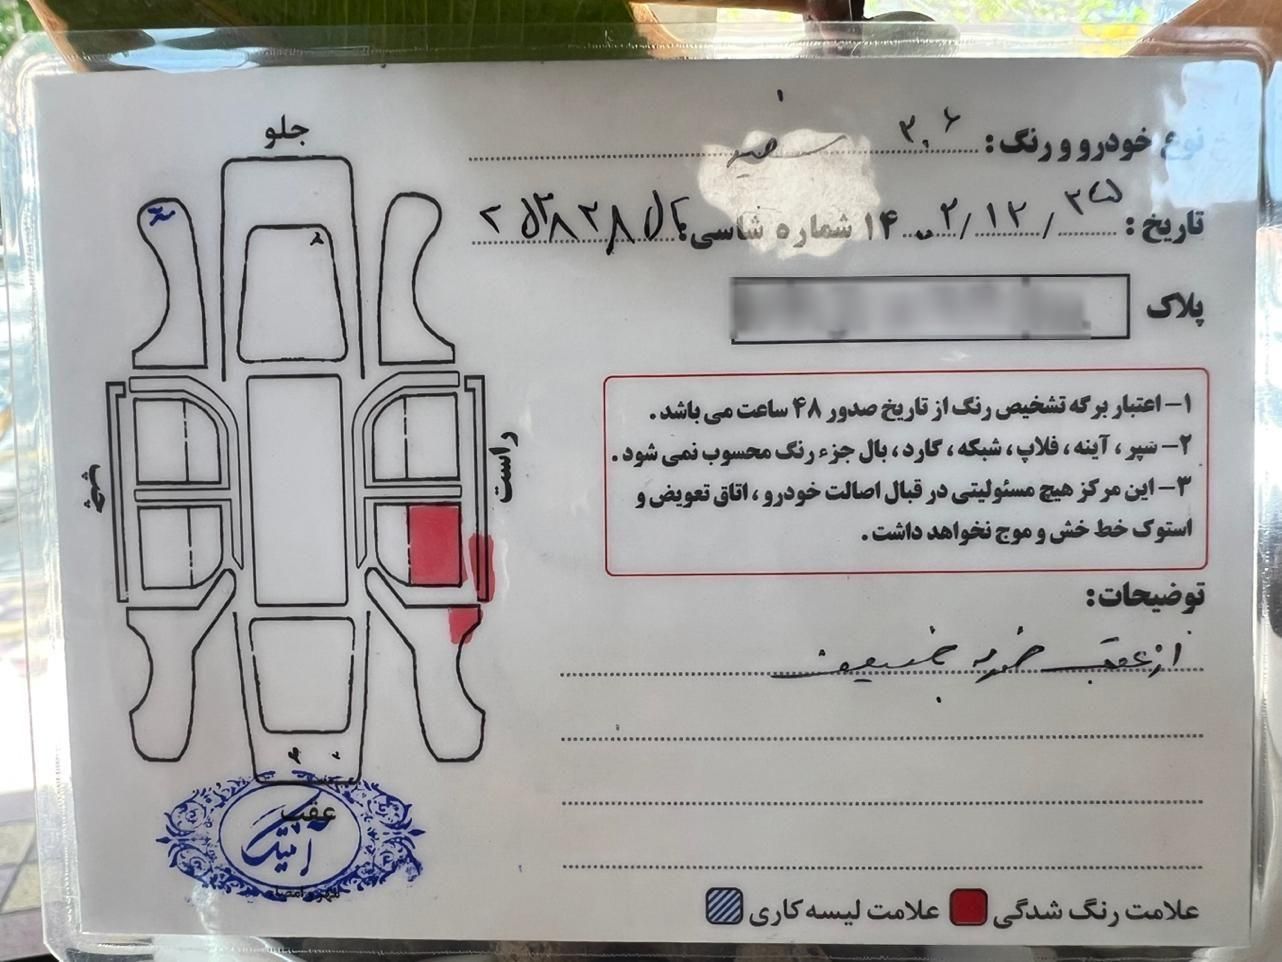 جلو
نوع خودرو و رنگ: ۲۰۶ سفید
تاریخ: ۱۴۰۲/۱۲/ شماره شاسی:
پلاک
۱- اعتبار برگه تشخیص رنگ از تاریخ صدور ۴۸ ساعت می باشد.
۲- سپر، آینه، فلاپ، شبکه، گارد، بال جزء رنگ محسوب نمی شود.
۳- این مرکز هیچ مسئولیتی در قبال اصالت خودرو، اتاق تعویض و
استوک خط خش و موج نخواهد داشت.
راست
چپ
توضیحات:
از عقب ضربه خفیف
عقب
مهر و امضا
علامت رنگ شدگی علامت لیسه کاری